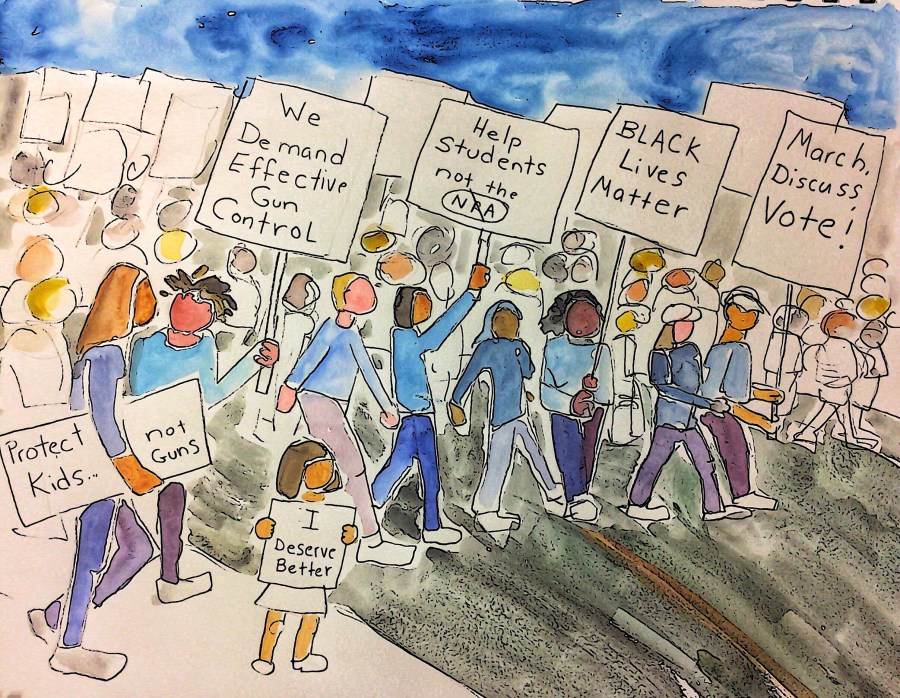 We
Demand
Effective
Gun
Control
Help
Students
not the
NRA
BLACK
Lives
Matter
March,
Discuss,
Vote!
Protect
Kids...
not
Guns
I
Deserve
Better